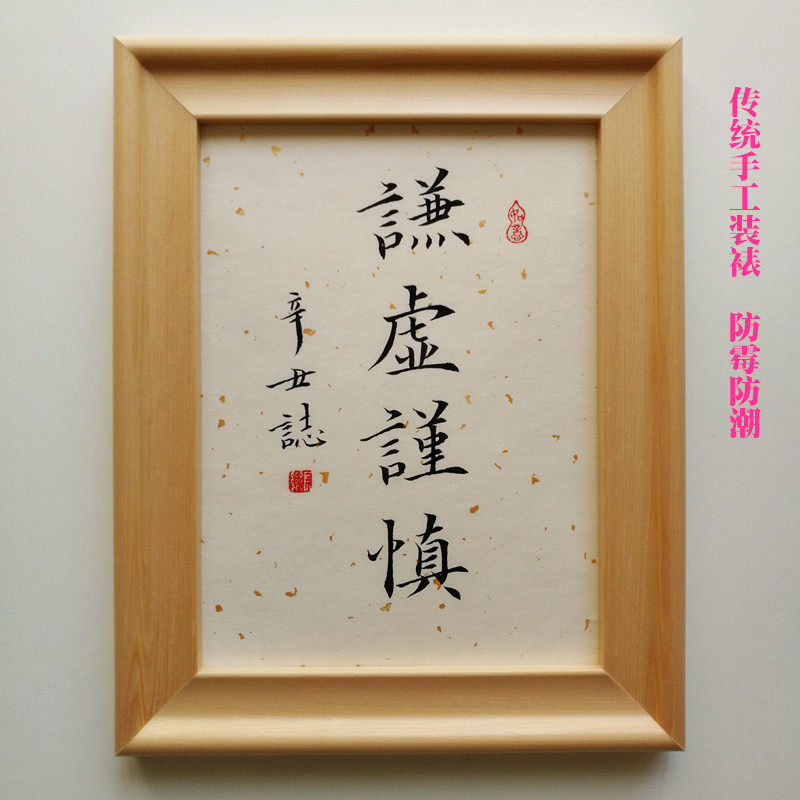 謙虚謹慎
辛丑誌
如意
传统手工装裱 防霉防潮